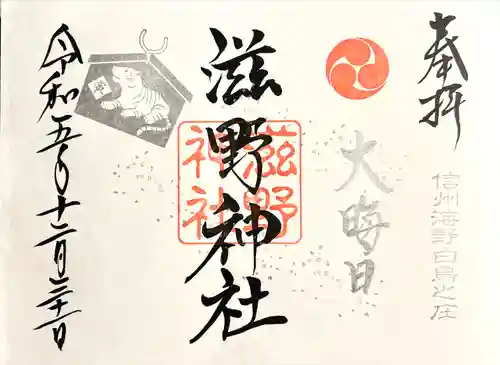 奉拝
信州海野白鳥之庄
大晦日
滋野神社
滋野
神社
令和五年十二月三十一日